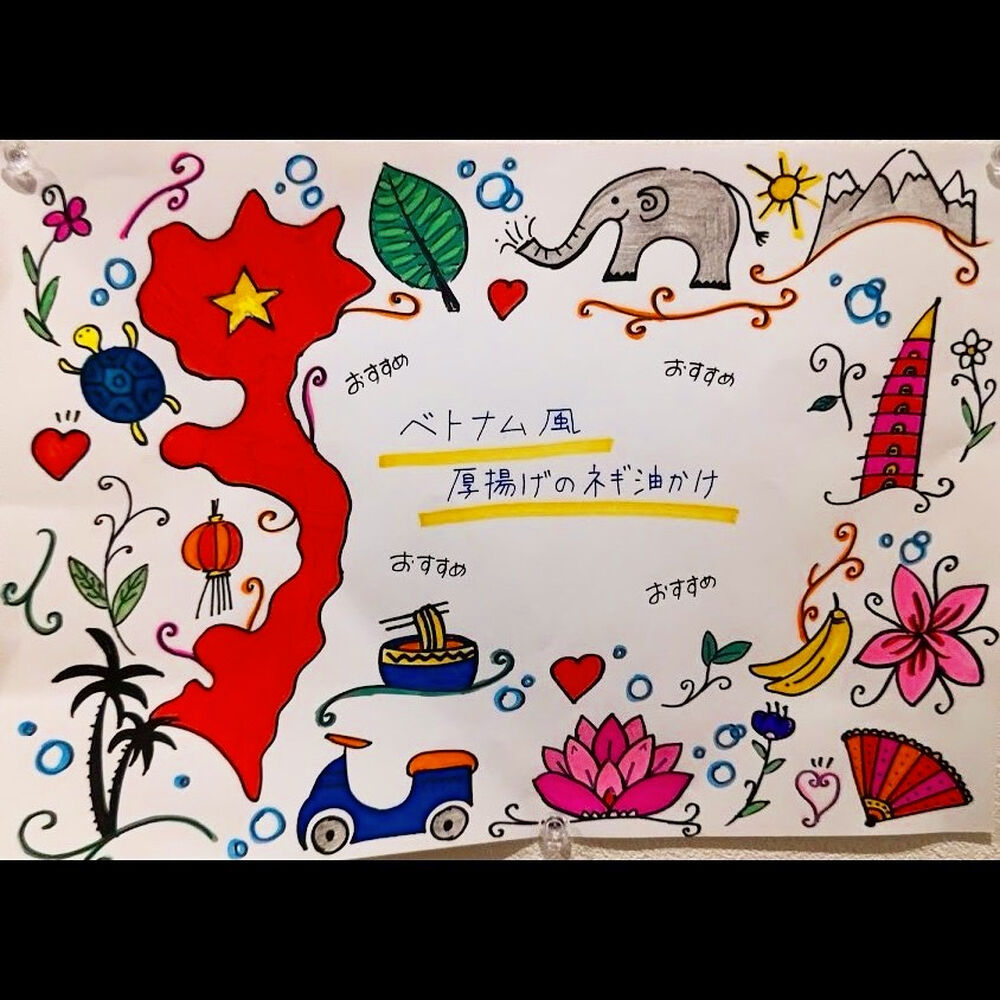 おすすめ
おすすめ
ベトナム風
厚揚げのネギ油かけ
おすすめ
おすすめ